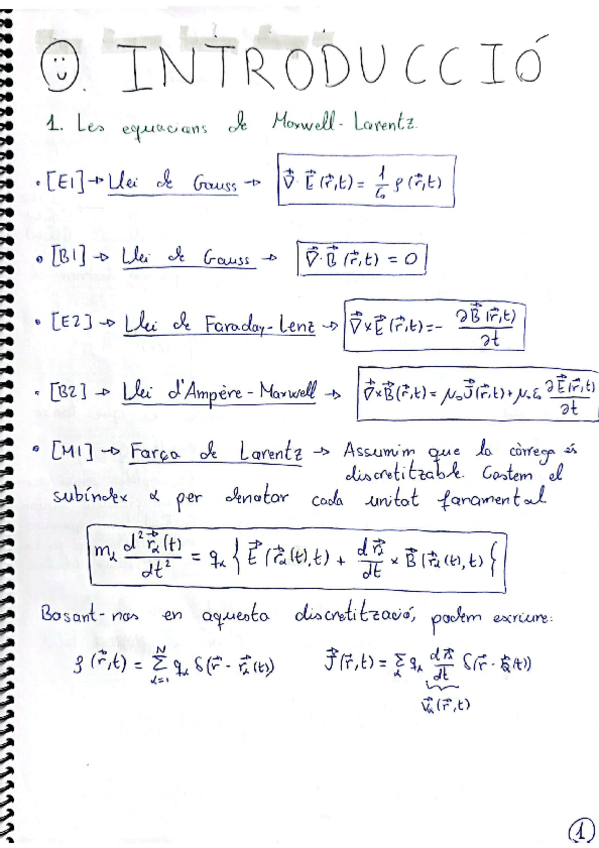 0. INTRODUCCIÓ
1. Les equacions de Maxwell-Lorentz.
• [E1] → Llei de Gauss → ∇⃗·E⃗(r⃗,t) = 1/ε₀ ρ(r⃗,t)
• [B1] → Llei de Gauss → ∇⃗·B⃗(r⃗,t) = 0
• [E2] → Llei de Faraday-Lenz → ∇⃗×E⃗(r⃗,t) = - ∂B⃗(r⃗,t)/∂t
• [B2] → Llei d'Ampère-Maxwell → ∇⃗×B⃗(r⃗,t) = μ₀J⃗(r⃗,t) + μ₀ε₀ ∂E⃗(r⃗,t)/∂t
• [M1] → Força de Lorentz → Assumim que la càrrega és
discretitzable. Gastem el
subíndex α per denotar cada unitat fonamental
mα d²r⃗α(t)/dt² = qα { E⃗(r⃗α(t),t) + dr⃗α/dt × B⃗(r⃗α(t),t) }
Basant-nos en aquesta discretització, podem escriure:
ρ(r⃗,t) = Σα=1^N qα δ(r⃗ - r⃗α(t)) J⃗(r⃗,t) = Σα qα dr⃗α/dt δ(r⃗ - r⃗α(t))
v⃗α(r⃗,t)
1